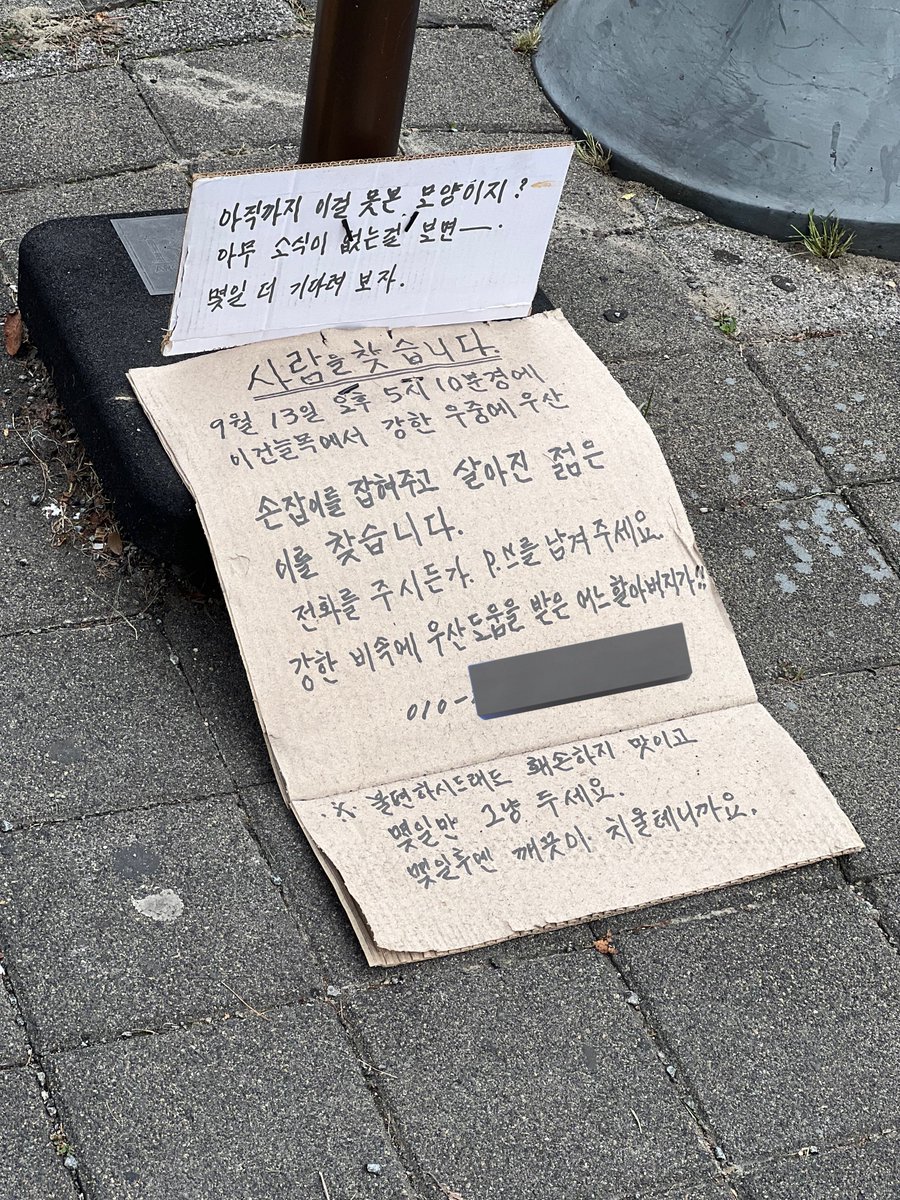 아직까지 이걸 못본 모양이지?
아무 소식이 없는걸 보면——.
몇일 더 기다려 보자.
사람을 찾습니다.
9월 13일 오후 5시 10분경에
이건늘목에서 강한 우중에 우산
손잡이를 잡혀주고 살아진 젊은
이를 찾습니다.
전화를 주시든가. P.S를 남겨주세요
강한 비속에 우산도움을 받은 어느할아버지가!!
010-
※ 불편하시드래도 홰손하지 맛이고
몇일만 그냥 두세요.
몇일후엔 깨끗이 치울테니까요.